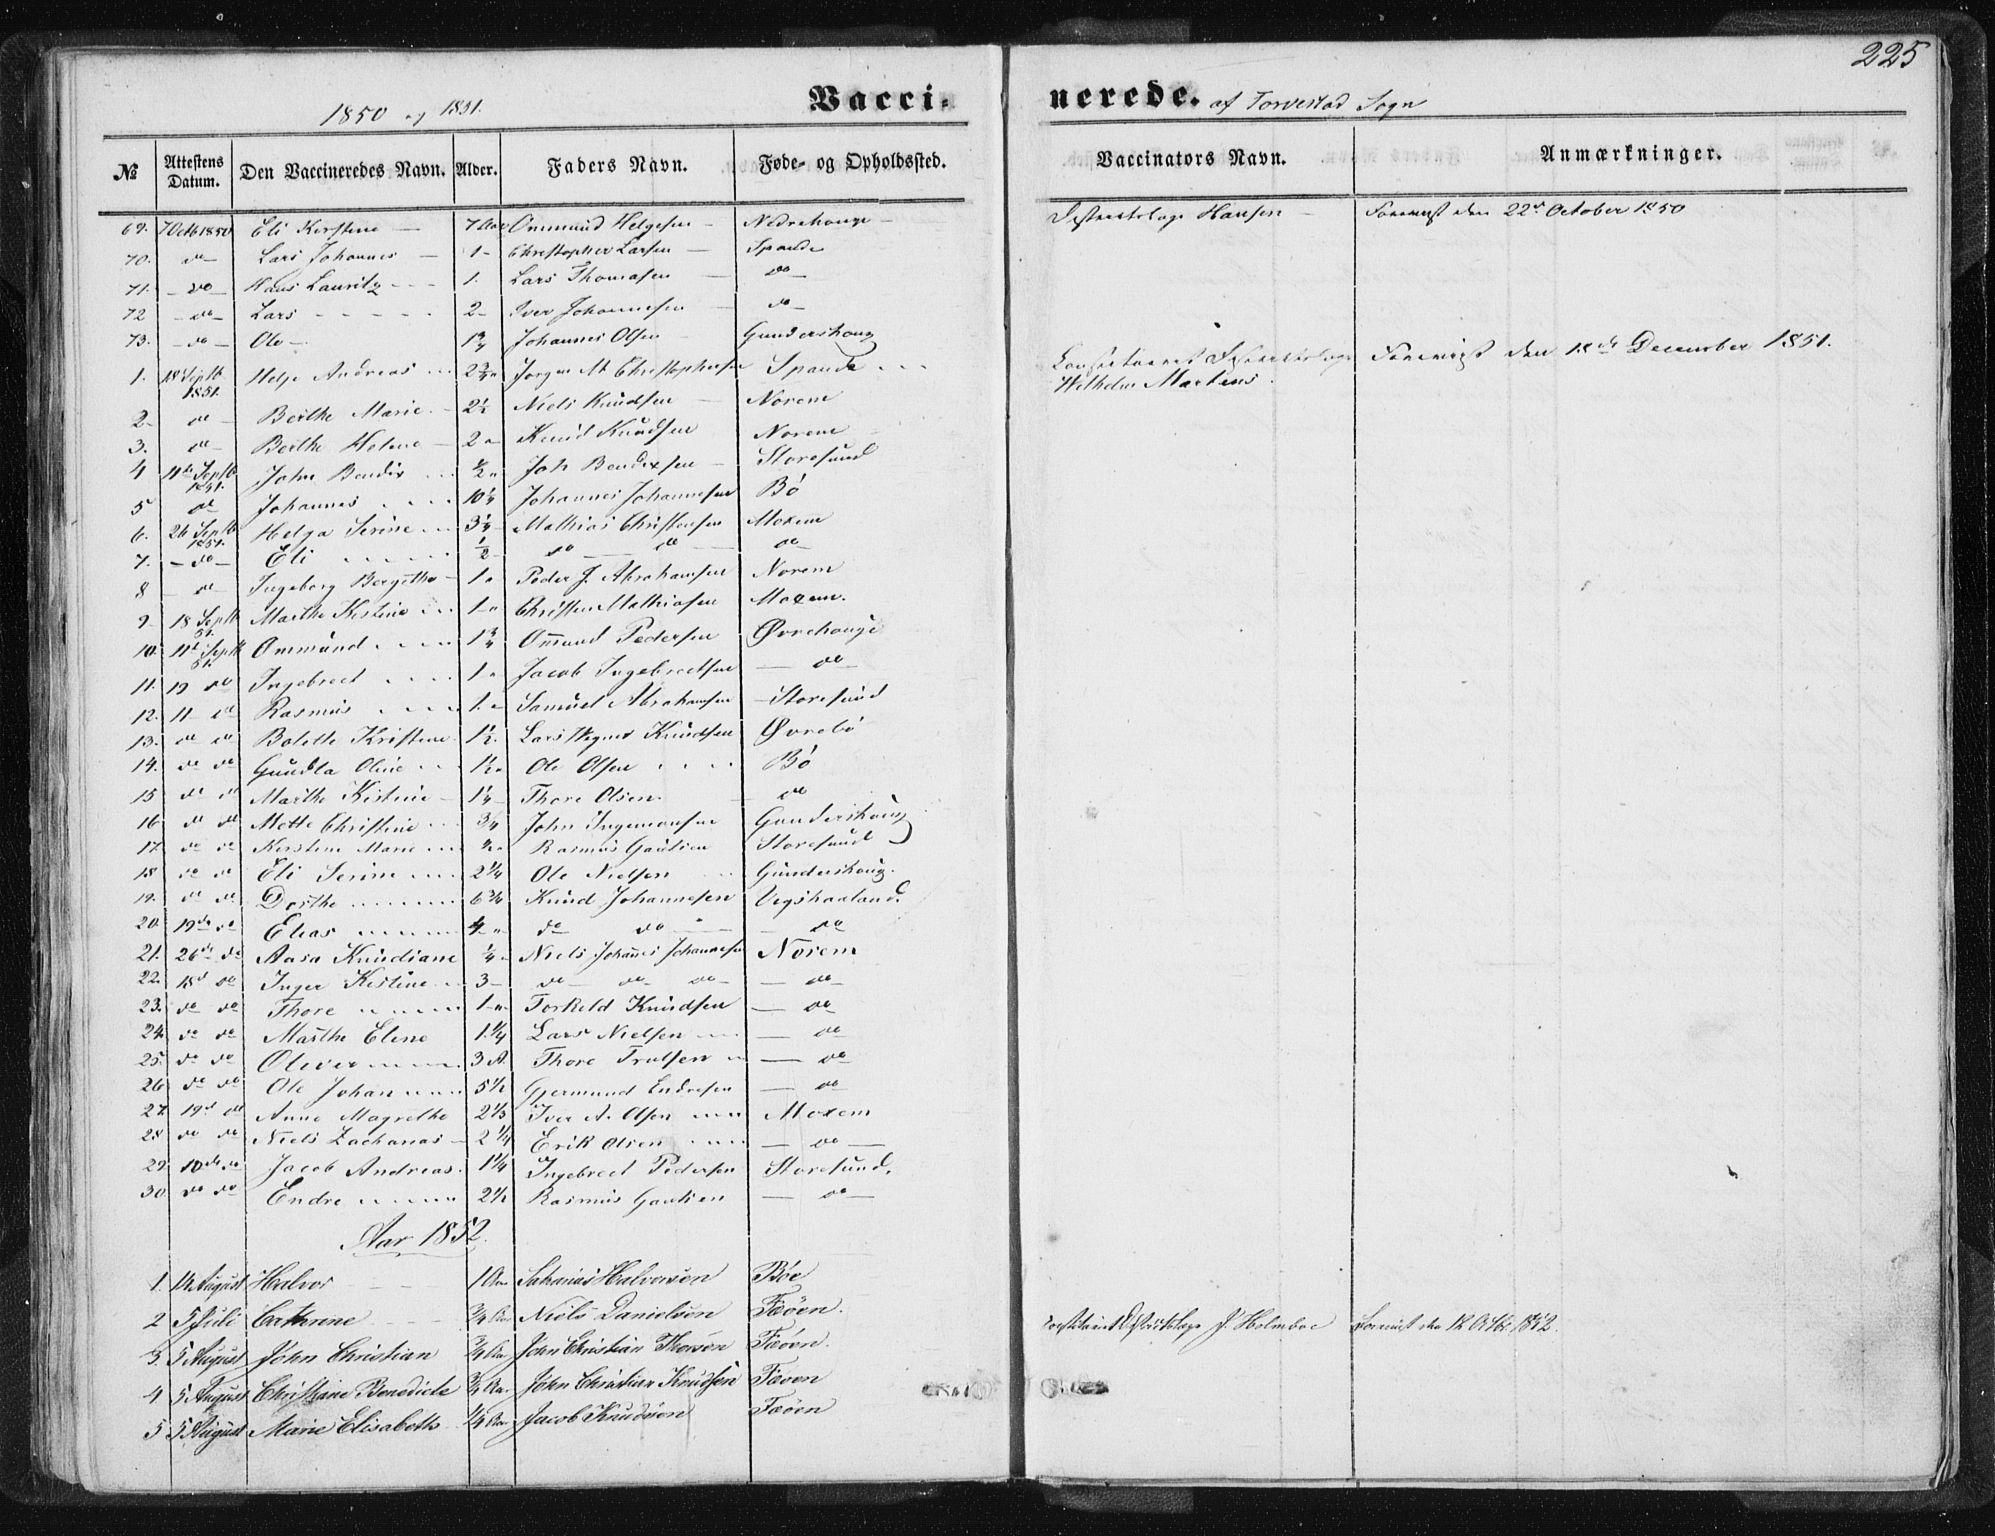 225
1850 og 1851. Vaccinerede. af Torvestad Sogn
№ Attestens Datum. Den Vaccineredes Navn. Alder. Faders Navn. Føde- og Opholdssted. Vaccinators Navn. Anmærkninger.
69. 7 Octb 1850 Eli Kirstine 7 Aar Ommund Helgesen Nedrehauge Hansen Foreviist den 22de October 1850
70. do Lars Johannes 1 Christopher Larsen Spande
71. do Hans Lauritz 1. Lars Thomasen do
72 do Lars 2 Iver Johannesen do
73. do Ole 1 3/4 Johannes Olsen Gundershoug
1. 18 Septb 1851. Helje Andreas 2 3/4 Jørgen M Christophersen Spande Constitueret Districtslæge Wilhelm Martens. Foreviist den 18de December 1851.
2 do Berthe Marie 2 1/2 Niels Knudsen Norem
3. do Berthe Helene 2 Knud Knudsen Norem
4 11te Septb 1851. John Bendix 1/2 Joh Bendixsen Storesund
5 do Johannes 10 1/4 Johannes Johannesen Bö
6. 26 Septb 1851. Helga Serine 3 1/4 Mathias Christensen Moxem
7. do Eli 1/2 do do do
8 do Ingeborg Bergithe 1 Peder J. Abrahamsen Norem
9 18 Septb 51. Marthe Kistine 1 Christen Mathiasen Moxem.
10. 11te Septb 51. Ommund 1 3/4 Omund Pedersen Øvrehauge
11. 19 do Ingebrect 1 Jacob Ingebrectsen do
12. 11 do Rasmus 1. Samuel Abrahamsen Storesund
13. do do Bolette Kristine 1 1/2. Lars Knudsen Øvrebö
14. do do Gundla Oline 1 1/2 Ole Olsen Bö
15 do do Marthe Kistine 1 1/4 Thore Olsen. do
16 do do Mette Christine 3/4 John Ingemansen Gundershoug
17. do do Kirstine Marie 1/2 Rasmus Gautsen Storesund
18 do do Eli Serine 2 1/4 Ole Nielsen Gunderskoug.
19. do do Dorthe 6 3/4 Knud Johannesen Vigshaaland.
20. 19de do Elias 4 do do do
21. 26de do Aasa Knudiane 1/4 Niels Johannes Johannesen Norem
22. 18d do Inger Kistine 3 do do do do
23. do do Thore 1 Torkeld Knudsen do
24. do do Marthe Eline 1 1/4 Lars Nielsen do
25. do do Oliver 3 A. Thore Trulsen do
26 do do Ole Johan 5 1/2 Gjermund Endresen do
27. 19d do Anne Magrethe 2 1/3 Iver A. Olsen Moxem
28 do do Niels Zacharias 2 1/4 Erik Olsen do
29 10de do Jacob Andreas. 1 1/4 Ingebrect Pedersen Storesund.
30. do do Endre 2 1/2 Rasmus Gautsen do
Aar 1852.
1. 14 August Halvor 1 Aar Sakarias Halvorsen Böe
2 5 Juli Cathrine 3/4 Aar Niels Danielsen Fæöen. Constitueret Districtslæge J. Holmboe Foreviist den 12 Octbr. 1852.
3. 5 August John Christian 3/4 Aar John Christian Thorsen Fæöen.
4 5 August Christiane Benedicte 3/4 Aar. John Christian Knudsen Fæoen
5 5 August Marie Elisabeth 1/4 Aar Jacob Knudsen Fæöen